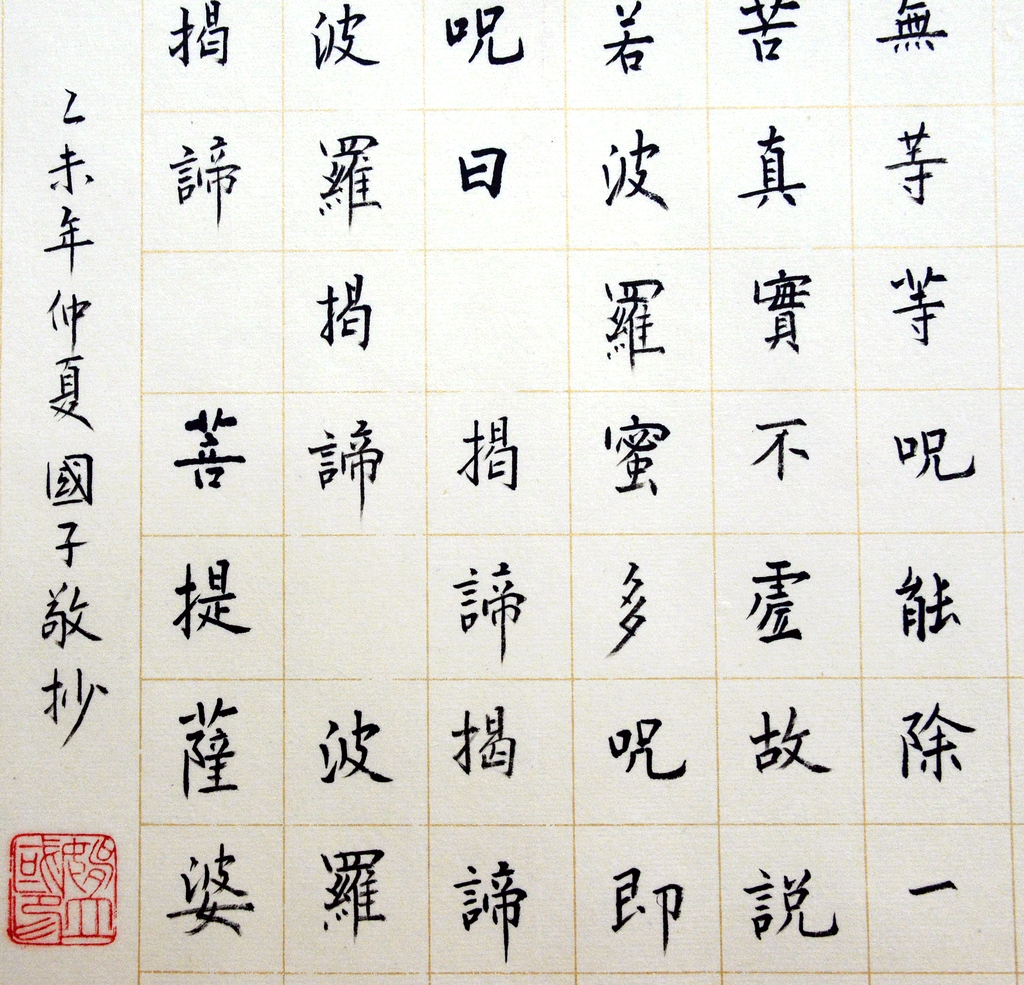 無等等呪能除一
苦真實不虛故說
若波羅蜜多呪即
呪曰 揭諦揭諦
波羅揭諦 波羅
揭諦 菩提薩婆
乙未年仲夏國子敬抄